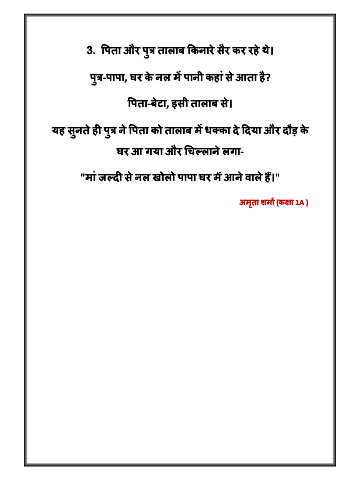 3. पिता और पुत्र तालाब किनारे सैर कर रहे थे।
पुत्र-पापा, घर के नल में पानी कहां से आता है?
पिता-बेटा, इसी तालाब से।
यह सुनते ही पुत्र ने पिता को तालाब में धक्का दे दिया और दौड़ के
घर आ गया और चिल्लाने लगा-
"मां जल्दी से नल खोलो पापा घर में आने वाले हैं।"
अमृता शर्मा (कक्षा 1A )